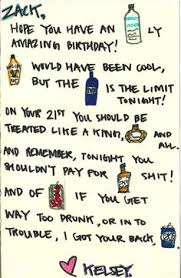 ZACK,
HOPE YOU HAVE AN LY
AMAZING BIRTHDAY!
WOULD HAVE BEEN COOL,
BUT THE IS THE LIMIT
TONIGHT!
ON YOUR 21ST YOU SHOULD BE
TREATED LIKE A KING, AND
ALL.
AND REMEMBER, TONIGHT YOU
SHOULDN'T PAY FOR SHIT!
AND OF IF YOU GET
WAY TOO DRUNK, OR IN TO
TROUBLE, I GOT YOUR BACK.
KELSEY.